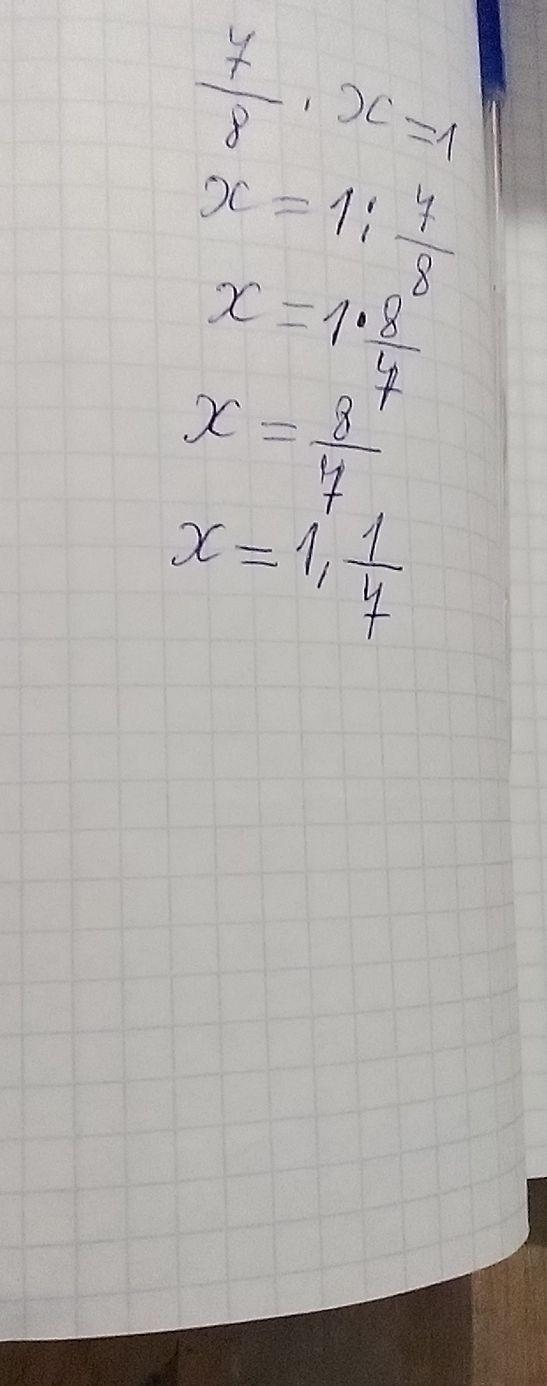 7/8 · x = 1
x = 1 : 7/8
x = 1 · 8/7
x = 8/7
x = 1, 1/7